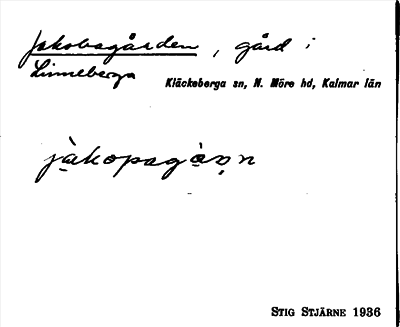 Jakobsgården, gård i
Linneberga
Kläckeberga sn, N. Möre hd, Kalmar län
jàkopsgàṇn
STIG STJÄRNE 1936